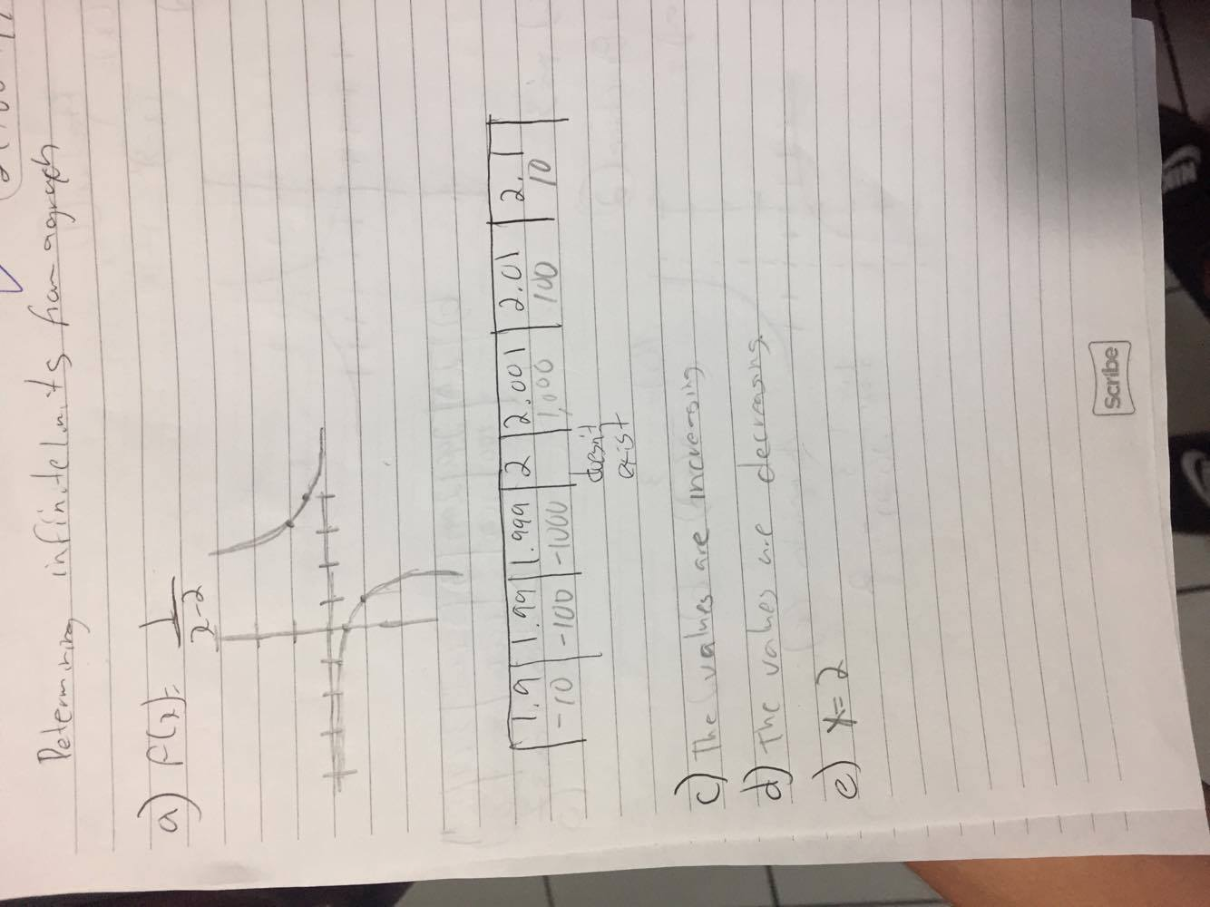 Determining infinite limits from a graph
a) f(x)= 1/x-2
1.9 | 1.99 | 1.999 | 2 | 2.001 | 2.01 | 2.1
-10 | -100 | -1000 | doesn't exist | 1,000 | 100 | 10
c) The values are increasing
d) The values are decreasing
e) x=2
scribe